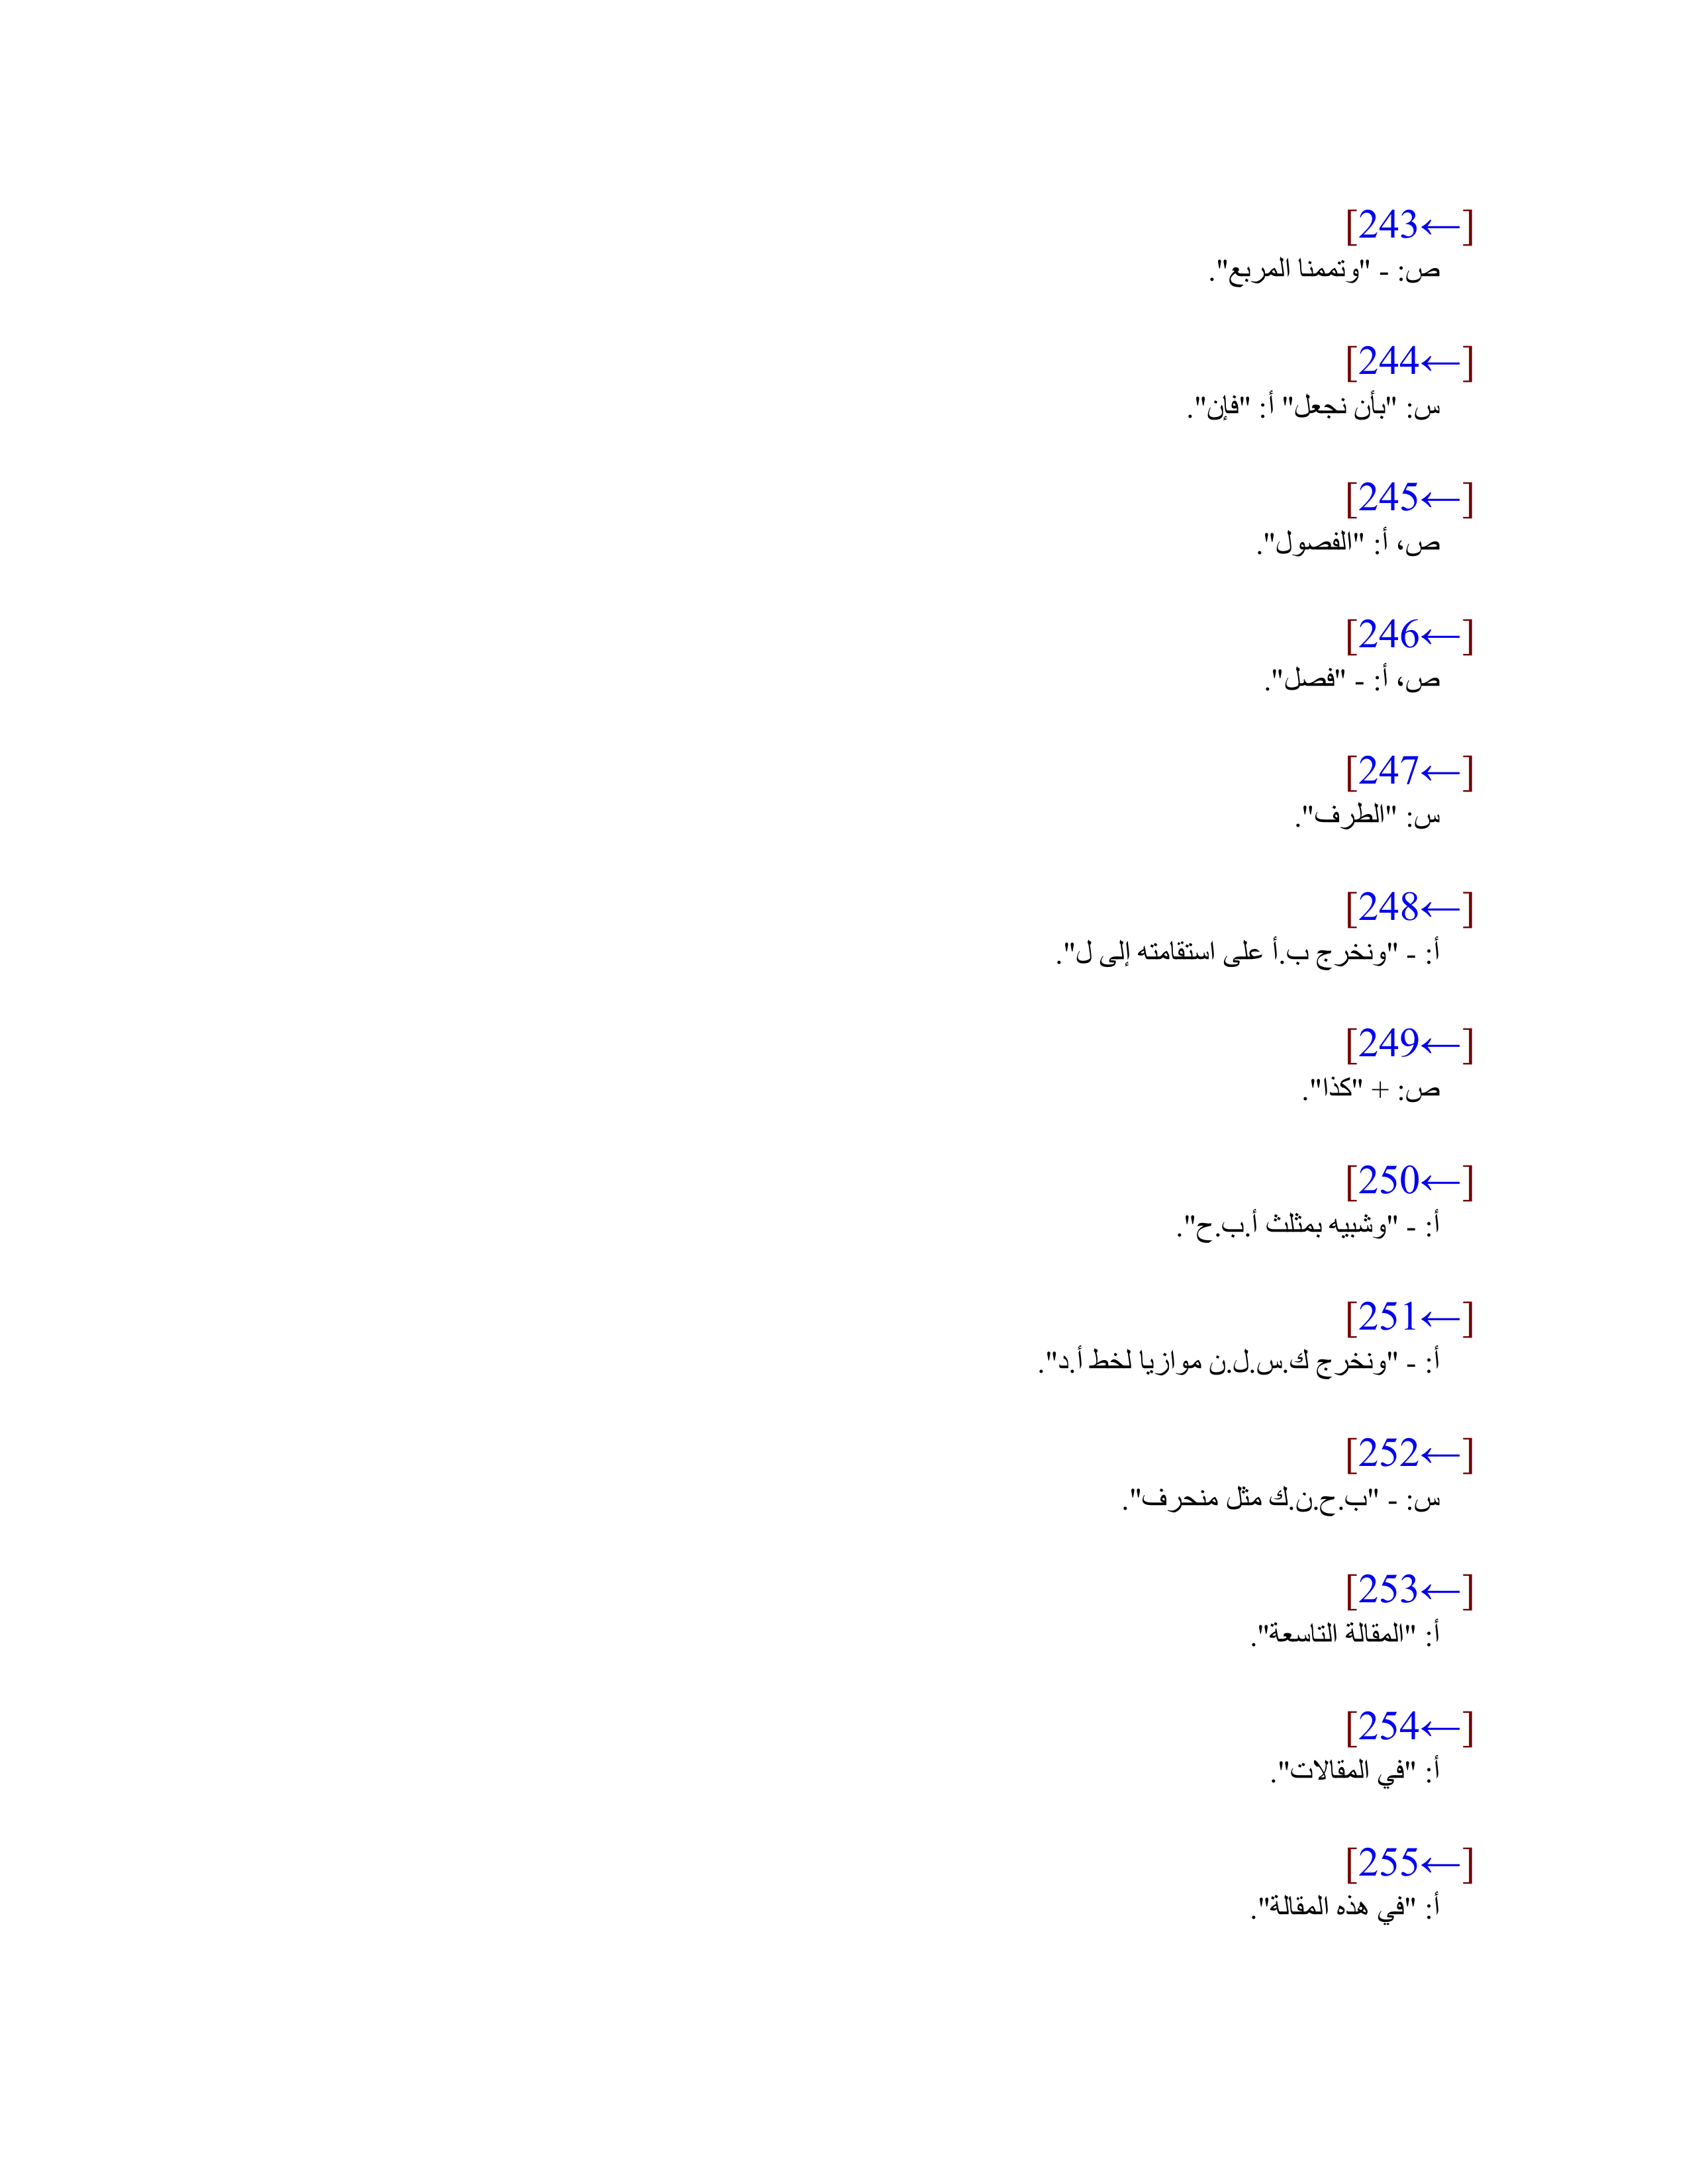 [←243]
ص: - "وتممنا المربع".
[←244]
س: "بأن نجعل" أ: "فإن".
[←245]
ص، أ: "الفصول".
[←246]
ص، أ: - "فصل".
[←247]
س: "الطرف".
[←248]
أ: - "ونخرج ب.أ على استقامته إلى ل".
[←249]
ص: + "كذا".
[←250]
أ: - "وشبيه بمثلث أ.ب.ح".
[←251]
أ: - "ونخرج ك.س.ل.ن موازيا لخط أ.د".
[←252]
س: - "ب.ح.ن.ك مثل منحرف".
[←253]
أ: "المقالة التاسعة".
[←254]
أ: "في المقالات".
[←255]
أ: "في هذه المقالة".